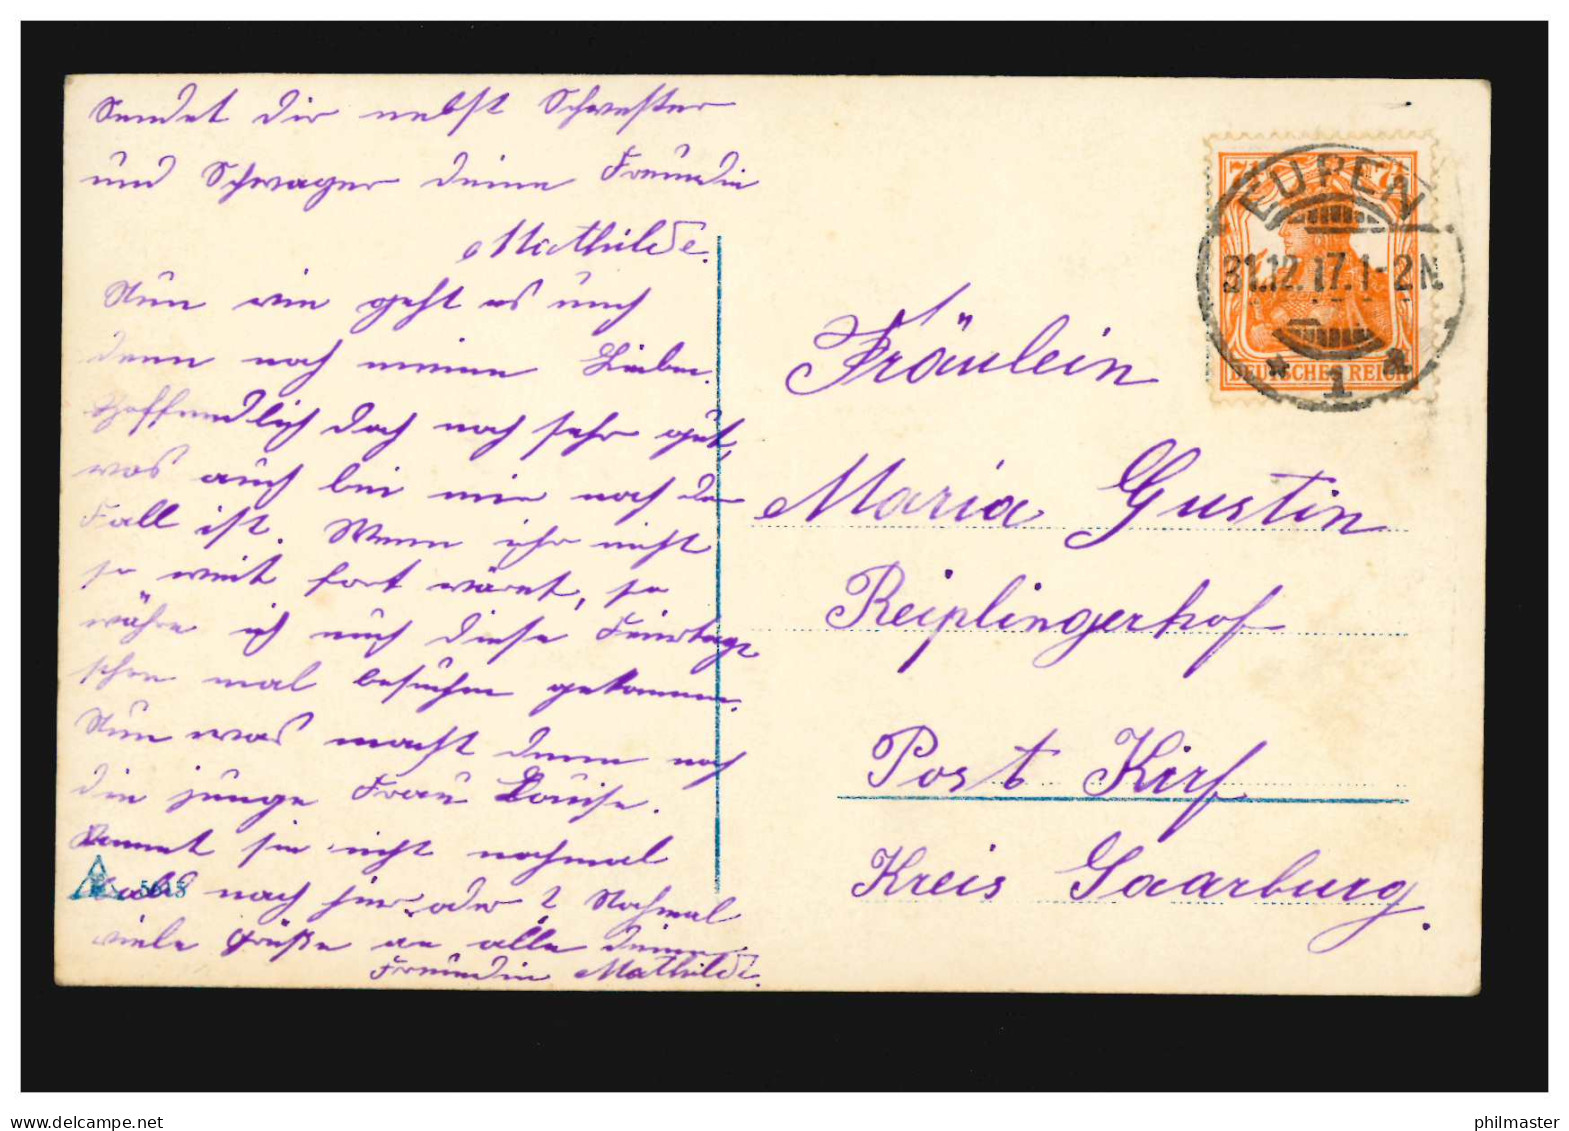 Sendet dir nebst Schwester
und Schwager deine Freundin
Mathilde.
Nun wie geht es euch
denn noch meine Lieben.
Hoffendlich doch noch sehr gut,
was auch bei mir noch der
Fall ist. Wenn ihr nicht
so weit fort wäret, so
währe ich euch diese Feiertage
schon mal besuchen gekommen.
Nun was macht denn noch
die junge Frau Louise.
Kommt sie nicht nochmal
bald nach hier, oder? Nochmal
viele Grüße an alle deine
Freundin Mathilde.
5615
7½ 7½
DEUTSCHES REICH
EUPEN
31.12.17.1-2N.
* 1 a
Fräulein
Maria Gustin
Reiplingerhof
Post Kirf
Kreis Saarburg.
delcampe.net
philmaster